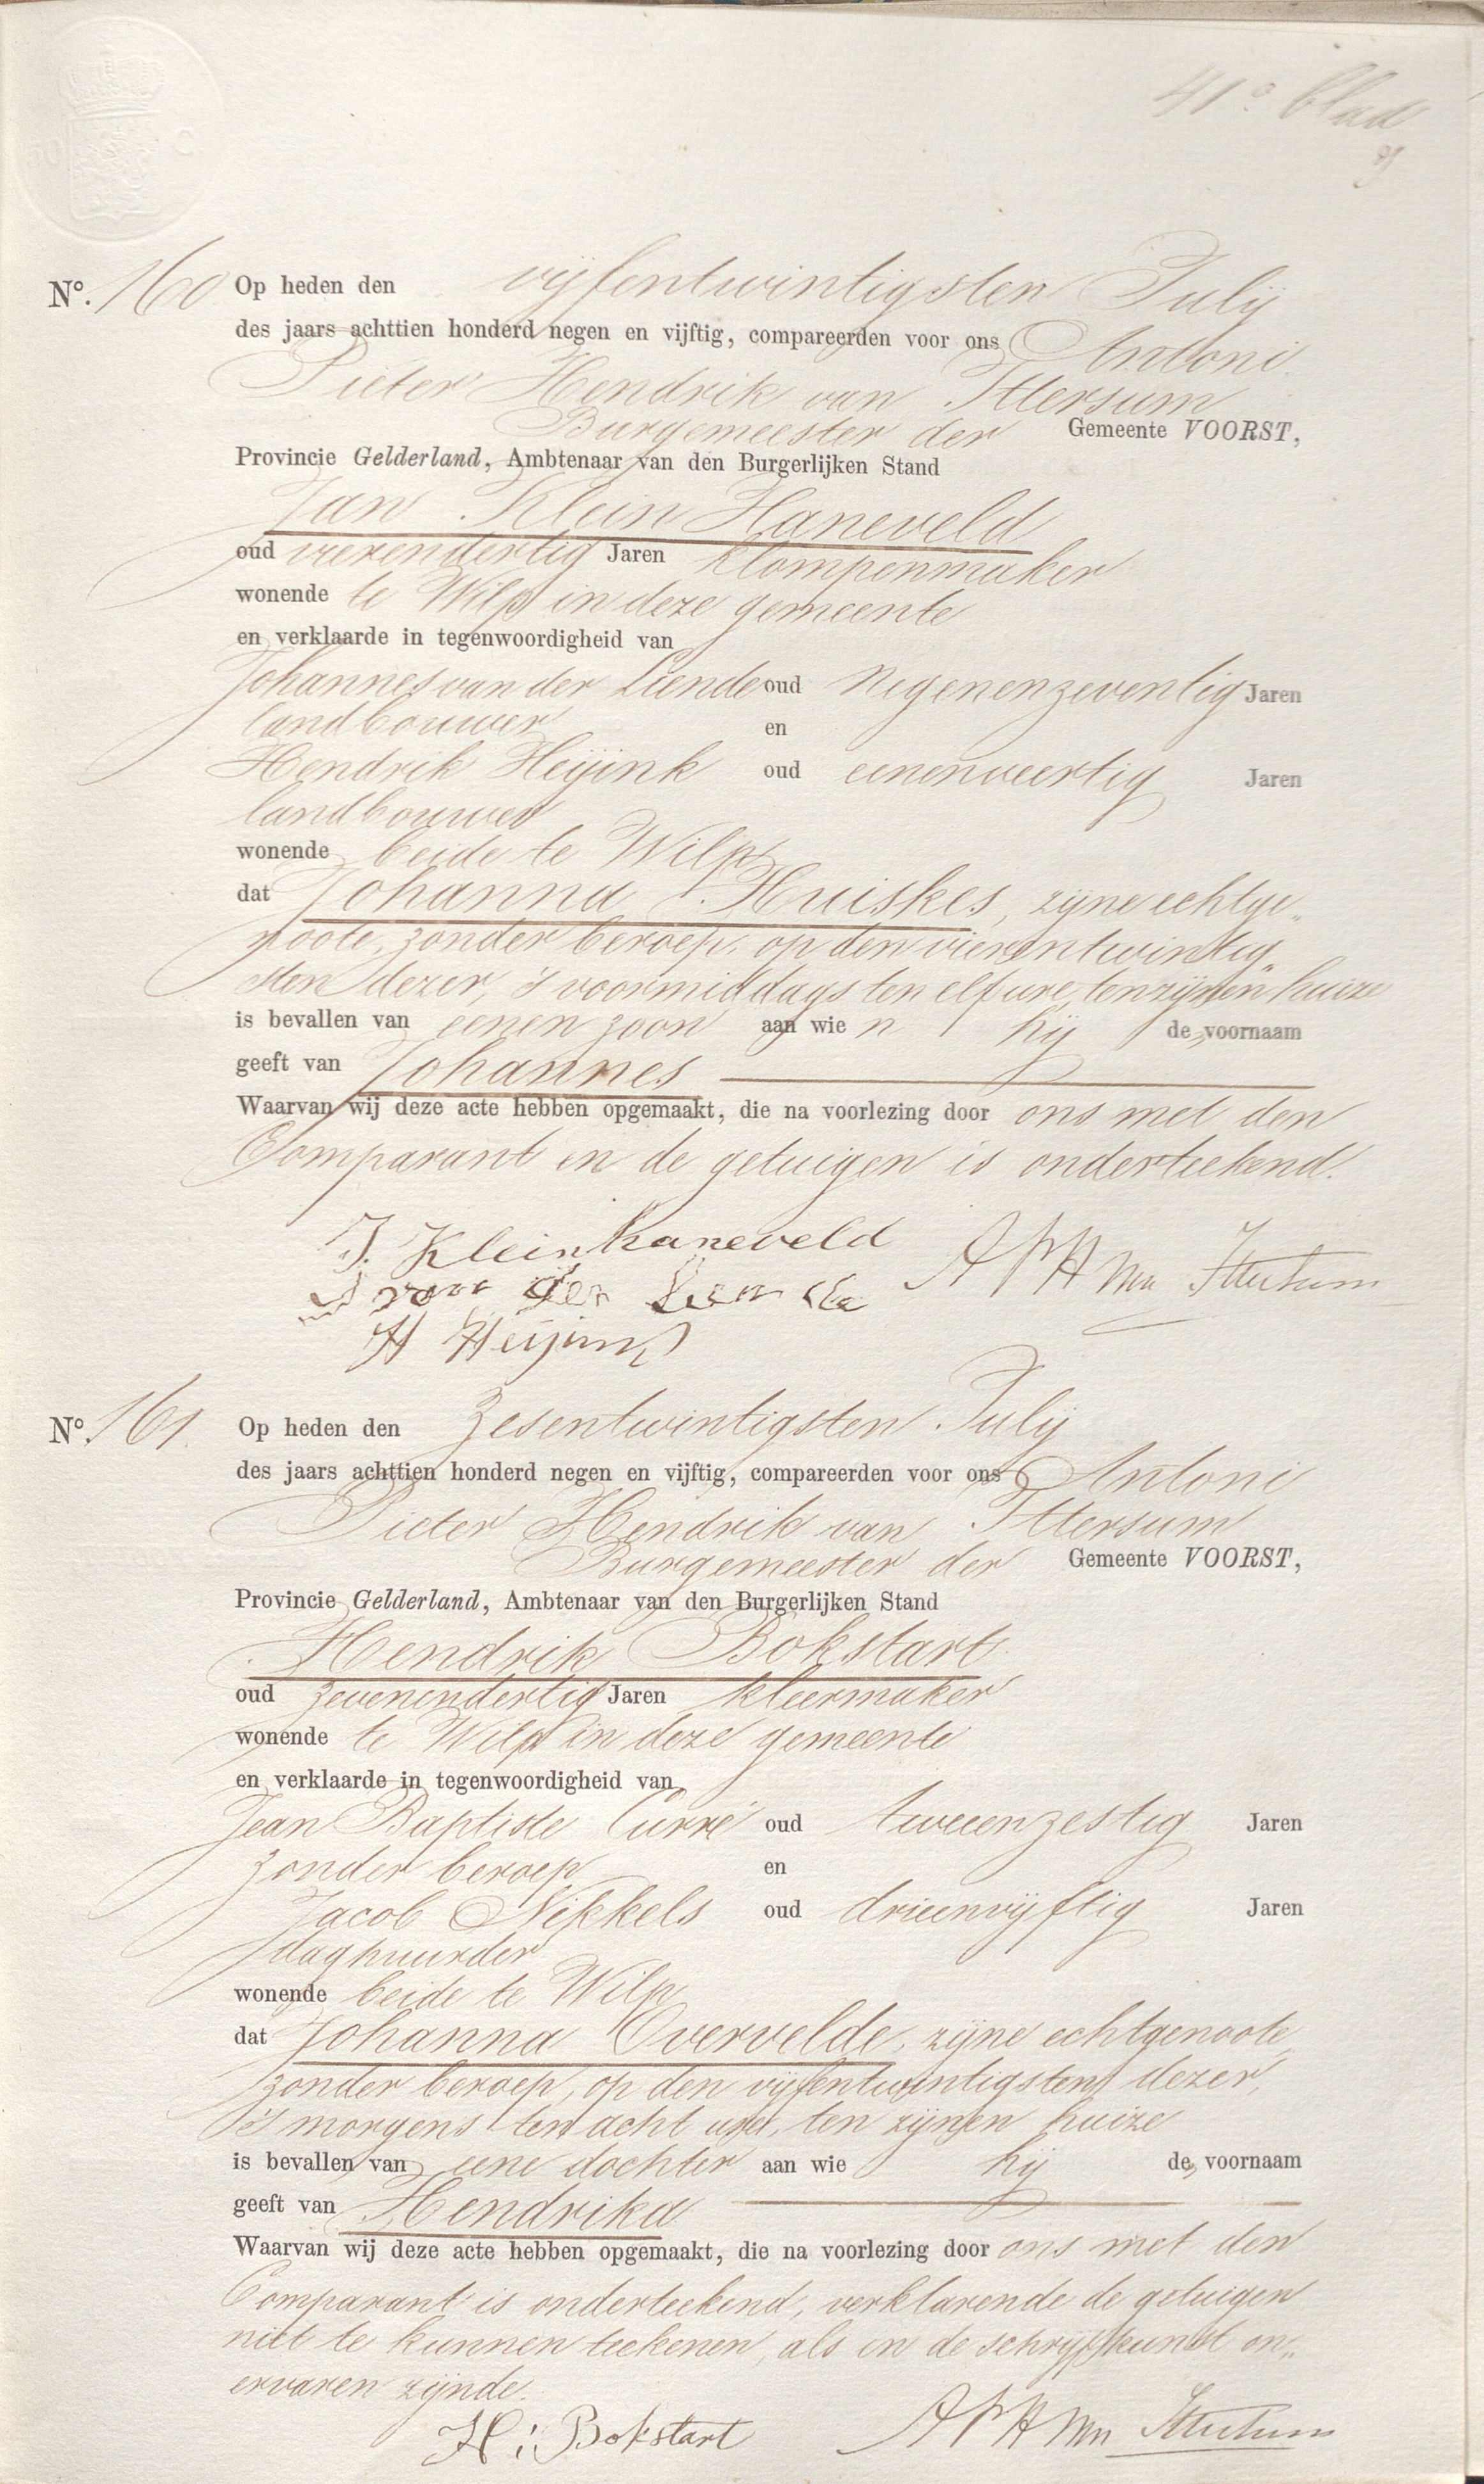 41e blad
No. 160 Op heden den vijfentwintigsten Julij
des jaars achttien honderd negen en vijftig, compareerden voor ons Antoni
Pieter Hendrik van Ittersum
Burgemeester der Gemeente VOORST,
Provincie Gelderland, Ambtenaar van den Burgerlijken Stand
Jan Klein Haneveld
oud vierendertig Jaren klompenmaker
wonende te Wilp in deze gemeente
en verklaarde in tegenwoordigheid van
Johannes van der Liende oud negenenzeventig Jaren
landbouwer en
Hendrik Heijink oud eenenveertig Jaren
landbouwer
wonende beide te Wilp
dat Johanna Huiskes, zijne echtge„
noote, zonder beroep, op den vierentwintig„
sten dezer, 's voormiddags ten elf ure, ten zijnen huize
is bevallen van eenen zoon aan wien hij de voornaam
geeft van Johannes
Waarvan wij deze acte hebben opgemaakt, die na voorlezing door ons met den
Comparant en de getuigen is onderteekend.
J. Klein haneveld APH van Ittersum
J van der Liende
H Heijink
No. 161. Op heden den zesentwintigsten Julij
des jaars achttien honderd negen en vijftig, compareerden voor ons Antoni
Pieter Hendrik van Ittersum
Burgemeester der Gemeente VOORST,
Provincie Gelderland, Ambtenaar van den Burgerlijken Stand
Hendrik Bokstart
oud zevenendertig Jaren kleermaker
wonende te Wilp in deze gemeente
en verklaarde in tegenwoordigheid van
Jean Baptiste Curré oud tweeenzestig Jaren
zonder beroep en
Jacob Nikkels oud drieenvijftig Jaren
daghuurder
wonende beide te Wilp
dat Johanna Overvelde, zijne echtgenoote,
zonder beroep, op den vijfentwintigsten dezer,
's morgens ten acht ure, ten zijnen huize
is bevallen van eene dochter aan wie hij de voornaam
geeft van Hendrika
Waarvan wij deze acte hebben opgemaakt, die na voorlezing door ons met den
Comparant is onderteekend, verklarende de getuigen
niet te kunnen teekenen, als in de schrijfkunst on„
ervaren zijnde.
H: Bokstart APH van Ittersum